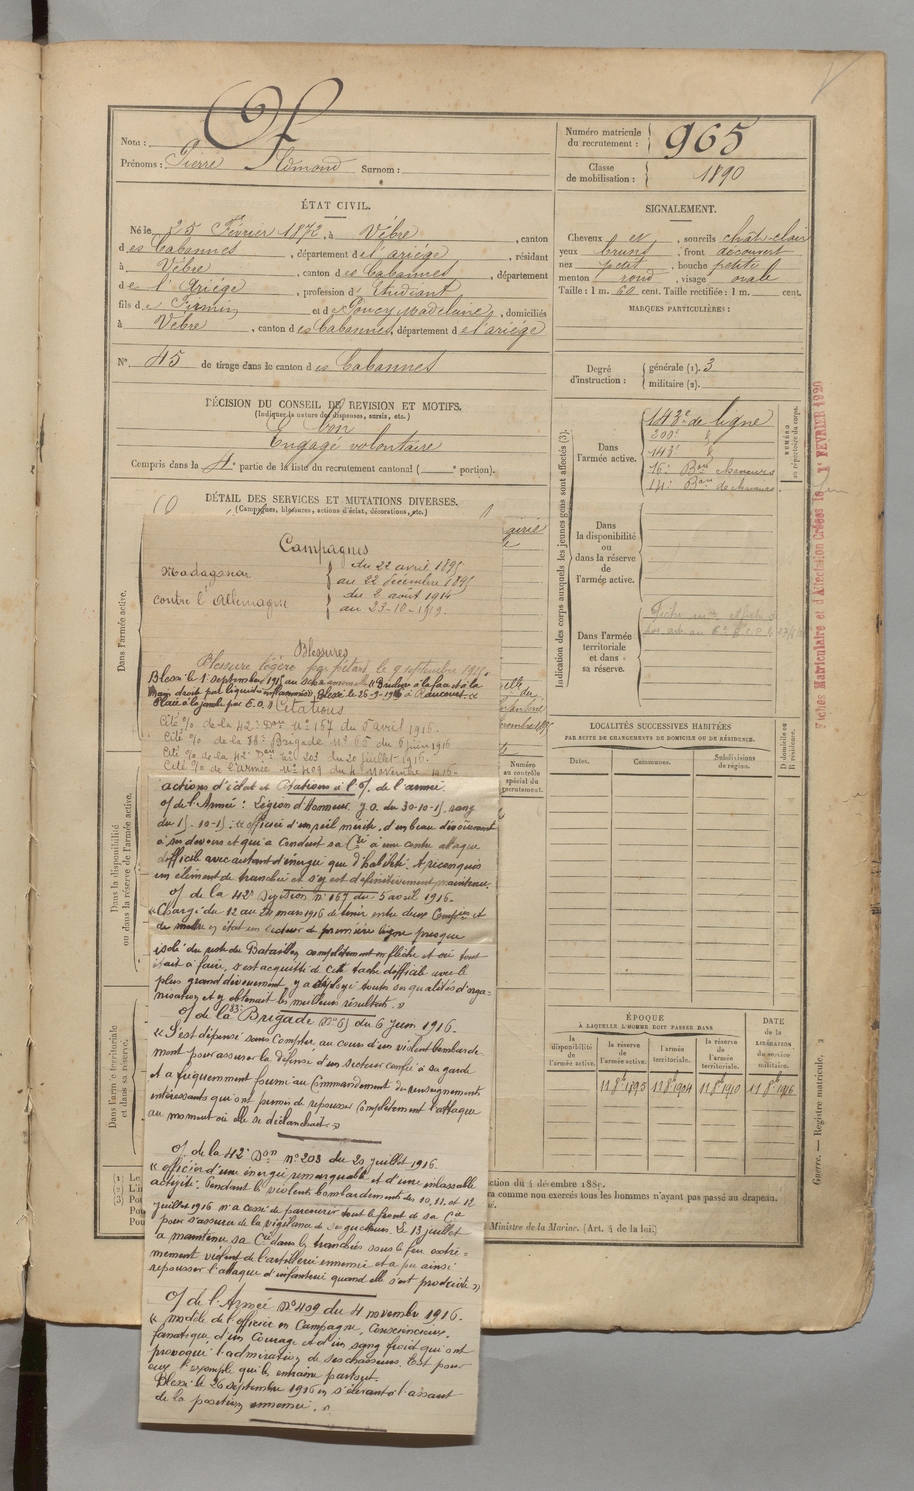 Nom :
Prénoms : Pierre Edmond Surnom :
Numéro matricule du recrutement : 965
Classe de mobilisation : 1890
ÉTAT CIVIL.
Né le 25 Février 1872, à Vèbre, canton
des Cabannes, département de l'ariège, résidant
à Vèbre, canton des Cabannes, département
de l'Ariège, profession d'Etudiant
fils de Firmin et de Goucy Madeleine, domiciliés
à Vèbre, canton des Cabannes, département de l'ariège
N° 45 de tirage dans le canton des Cabannes
SIGNALEMENT.
Cheveux et, sourcils chât-clair
yeux bruns, front découvert
nez petit, bouche petite
menton rond, visage ovale
Taille : 1 m. 60 cent. Taille rectifiée : 1 m. cent.
MARQUES PARTICULIÈRES :
Degré d'instruction : générale (1). 3
militaire (2).
DÉCISION DU CONSEIL DE REVISION ET MOTIFS.
(Indiquer la nature des dispenses, sursis, etc.)
bon
Engagé volontaire
Compris dans la 4e partie de la liste du recrutement cantonal ( e portion).
DÉTAIL DES SERVICES ET MUTATIONS DIVERSES.
(Campagnes, blessures, actions d'éclat, décorations, etc.)
Dans l'armée active.
Dans la disponibilité ou dans la réserve de l'armée active.
Dans l'armée territoriale et dans sa réserve.
Campagnes
Madagascar du 22 avril 1895
au 22 décembre 1895
contre l'Allemagne du 2 août 1914
au 23-10-1919.
Blessures
Blessure légère par pétard le 9 septembre 1915
Blessé le 1er septembre 1915 au « Brulure à la face et à la
main droite par liquides enflammés » Blessé le 26-9-1916 à Rancourt «
Plaie à la jambe par E.O. »
Citations
Cité % de la 42e Don N° 167 du 5 avril 1916.
Cité % de la 83e Brigade N° 65 du 6 juin 1916
Cité % de la 42e Don N° 203 du 20 juillet 1916.
Cité % de l'armée N° 409 du 4 Novembre 1916.
actions d'éclat et Citations à l'O. de l'armée.
O/ de l'Armée : Légion d'Honneur J.O. du 30-10-15, rang
du 15-10-15 : « officier d'un réel mérite, d'un beau dévouement
à ses devoirs et qui a conduit sa Cie à une contre attaque
difficile avec autant d'énergie que d'habileté. A reconquis
un élément de tranchée et s'y est définitivement maintenu.
O/ de la 42e Division N° 167 du 5 avril 1916.
« Chargé du 12 au 24 mars 1916 de tenir entre deux Compies et
de mettre en état un secteur de première ligne presque
isolé du reste du Bataillon, complètement en flèche et où tout
était à faire, s'est acquitté de cette tâche difficile avec le
plus grand dévouement, y a déployé toutes ses qualités d'orga-
nisation et y obtenait les meilleurs résultats. »
O/ de la 83e Brigade N° 65 du 6 Juin 1916.
« S'est dépensé sans compter, au cours d'un violent bombarde-
ment pour assurer la défense d'un secteur confié à sa garde
et a fréquemment fourni au Commandement des renseignements
intéressants qui ont permis de repousser complètement l'attaque
au moment où elle se déclanchait. »
O/ de la 42e Don N° 203 du 20 Juillet 1916.
« officier d'une énergie remarquable et d'une inlassable
activité. Pendant les violents bombardements des 10, 11 et 12
juillet 1916 n'a cessé de parcourir tout le front de sa Cie
pour s'assurer de la vigilance de ses guetteurs. Le 13 juillet
a maintenu sa Cie dans les tranchées sous le feu extrê-
mement violent de l'artillerie ennemie et a pu ainsi
repousser l'attaque d'infanterie quand elle s'est produite »
O/ de l'Armée N° 409 du 4 novembre 1916.
« modèle de l'officier en Campagne, Consciencieux,
fanatique, d'un Courage et d'un sang froid qui ont
provoqué l'admiration de ses chasseurs. Est pour
eux l'exemple qui les entraine partout.
Blessé le 26 septembre 1916 en s'élançant à l'assaut
de la position ennemie. »
Indication des corps auxquels les jeunes gens sont affectés (3).
Dans l'armée active.
143e de ligne
200e d°
143e d°
16e Bon chasseurs
14e Bon de chasseurs.
NUMÉRO au répertoire du corps.
Dans la disponibilité ou dans la réserve de l'armée active.
Dans l'armée territoriale et dans sa réserve.
Fiches Matriculaire et d'Affectation Créées le 1er FEVRIER 1920
LOCALITÉS SUCCESSIVES HABITÉES
PAR SUITE DE CHANGEMENTS DE DOMICILE OU DE RÉSIDENCE.
Dates.
Communes.
Subdivisions de région.
D domicile ou R résidence.
Numéro au contrôle spécial du recrutement.
ÉPOQUE
À LAQUELLE L'HOMME DOIT PASSER DANS
la disponibilité de l'armée active.
la réserve de l'armée active.
l'armée territoriale.
la réserve de l'armée territoriale.
DATE de la LIBÉRATION du service militaire.
11 8bre 1895
11 8bre 1904
11 8bre 1910
11 8bre 1916
ction du 4 décembre 1889.
ra comme non exercés tous les hommes n'ayant pas passé au drapeau.
Ministre de la Marine. (Art. 4 de la loi.)
Guerre. — Registre matricule. 2